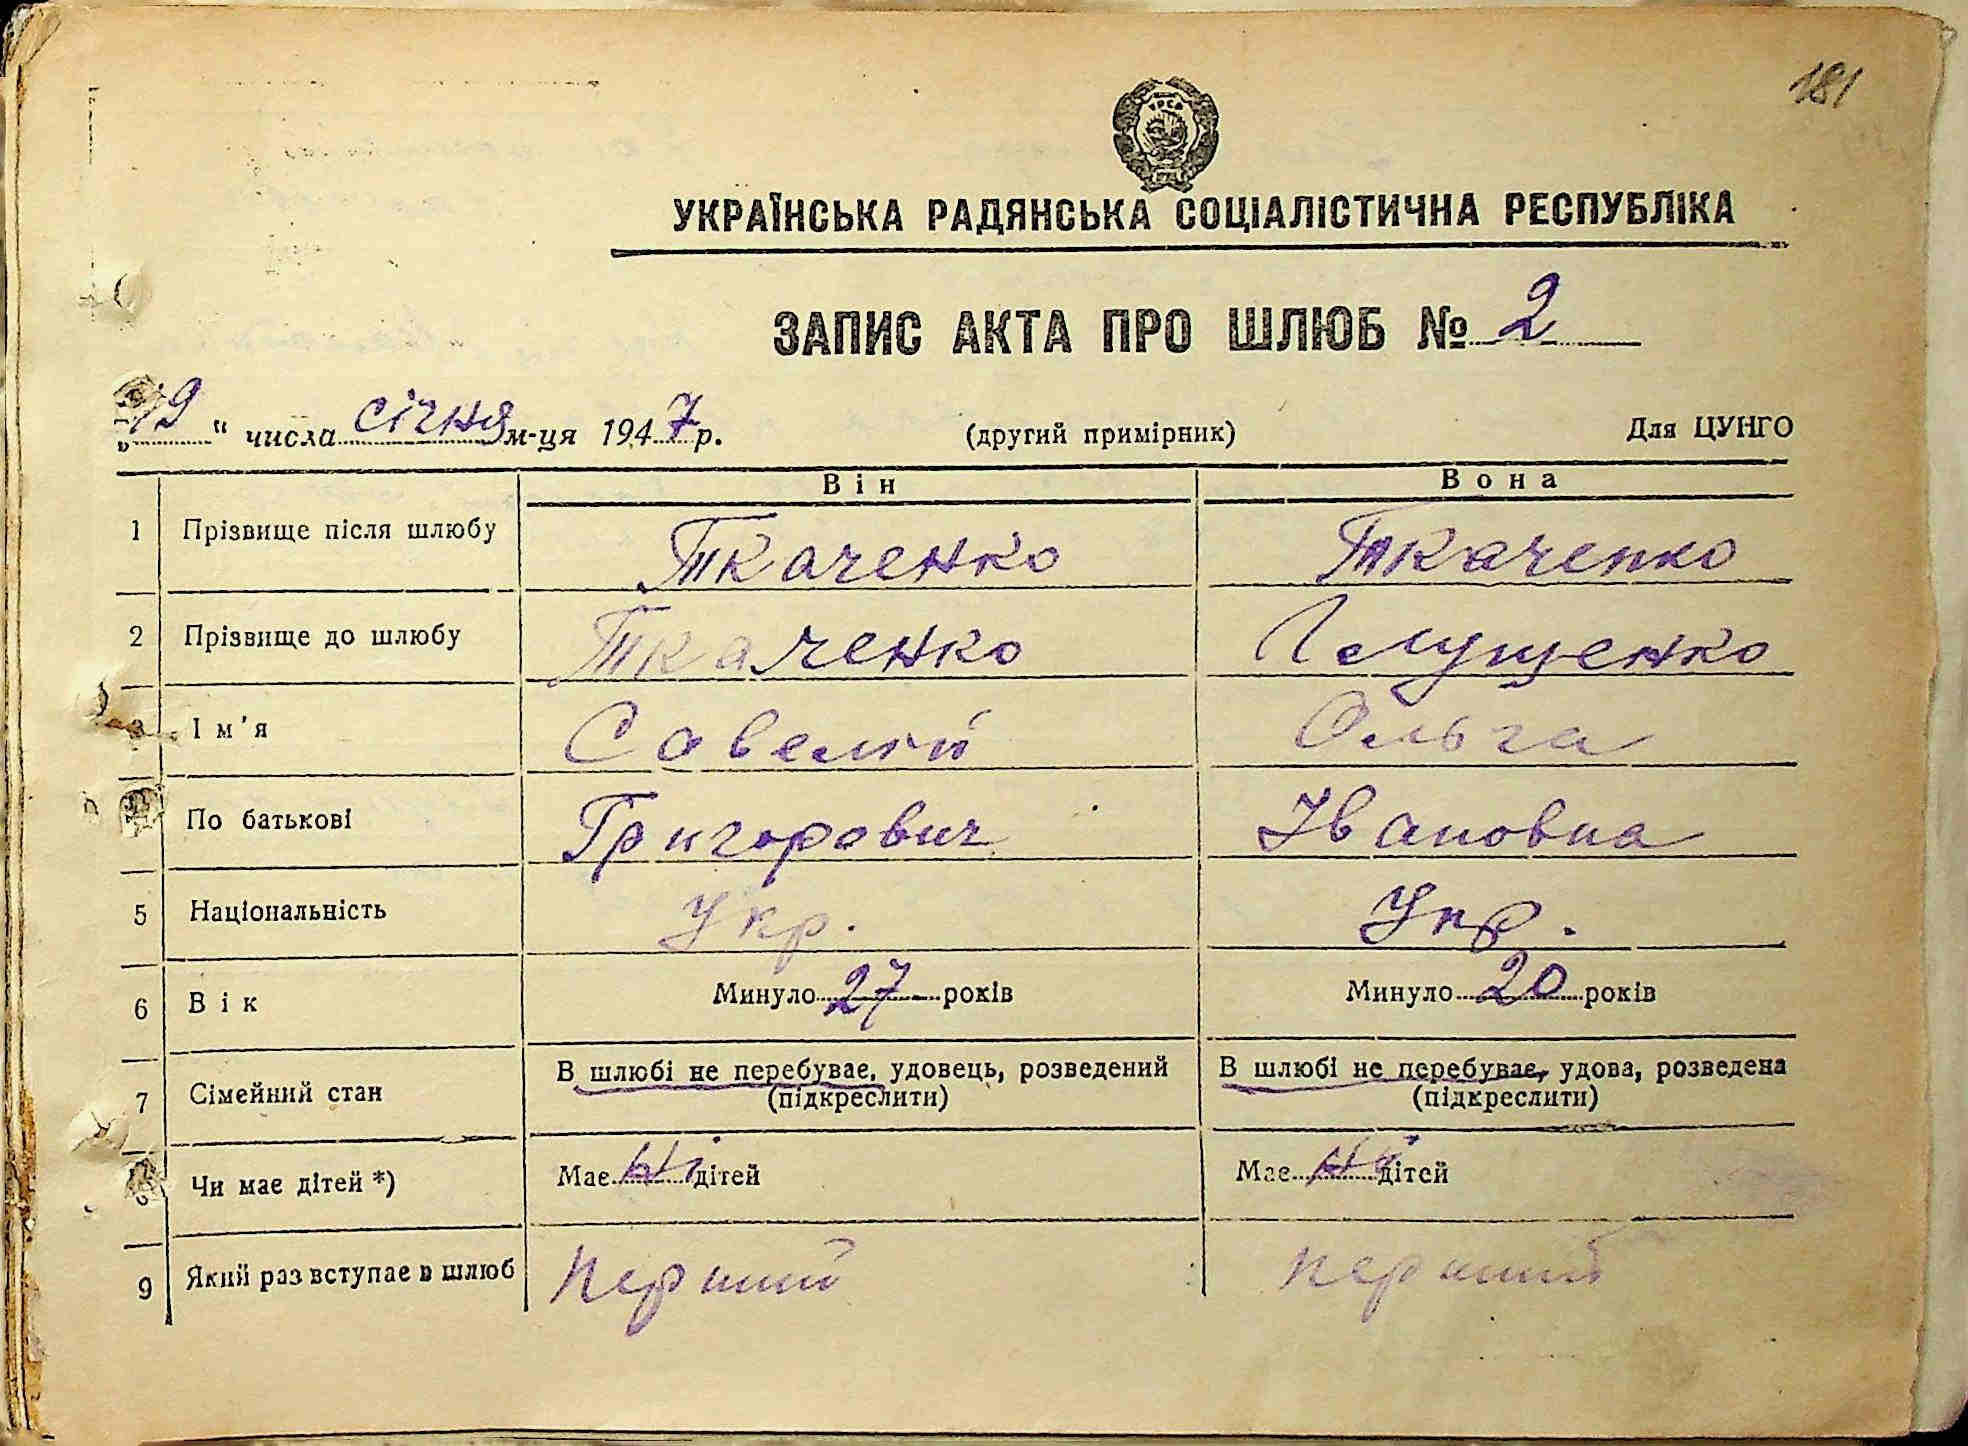 181
УРСР
УКРАЇНСЬКА РАДЯНСЬКА СОЦІАЛІСТИЧНА РЕСПУБЛІКА
ЗАПИС АКТА ПРО ШЛЮБ № 2
„19“ числа січня м-ця 1947 р. (другий примірник) Для ЦУНГО
Він Вона
1 Прізвище після шлюбу Ткаченко Ткаченко
2 Прізвище до шлюбу Ткаченко Глущенко
3 Ім'я Савелий Ольга
4 По батькові Григорович Івановна
5 Національність Укр. Укр.
6 Вік Минуло 27 років Минуло 20 років
7 Сімейний стан В шлюбі не перебуває, удовець, розведений В шлюбі не перебуває, удова, розведена
(підкреслити) (підкреслити)
8 Чи має дітей *) Має ні дітей Має ні дітей
9 Який раз вступає в шлюб перший перший